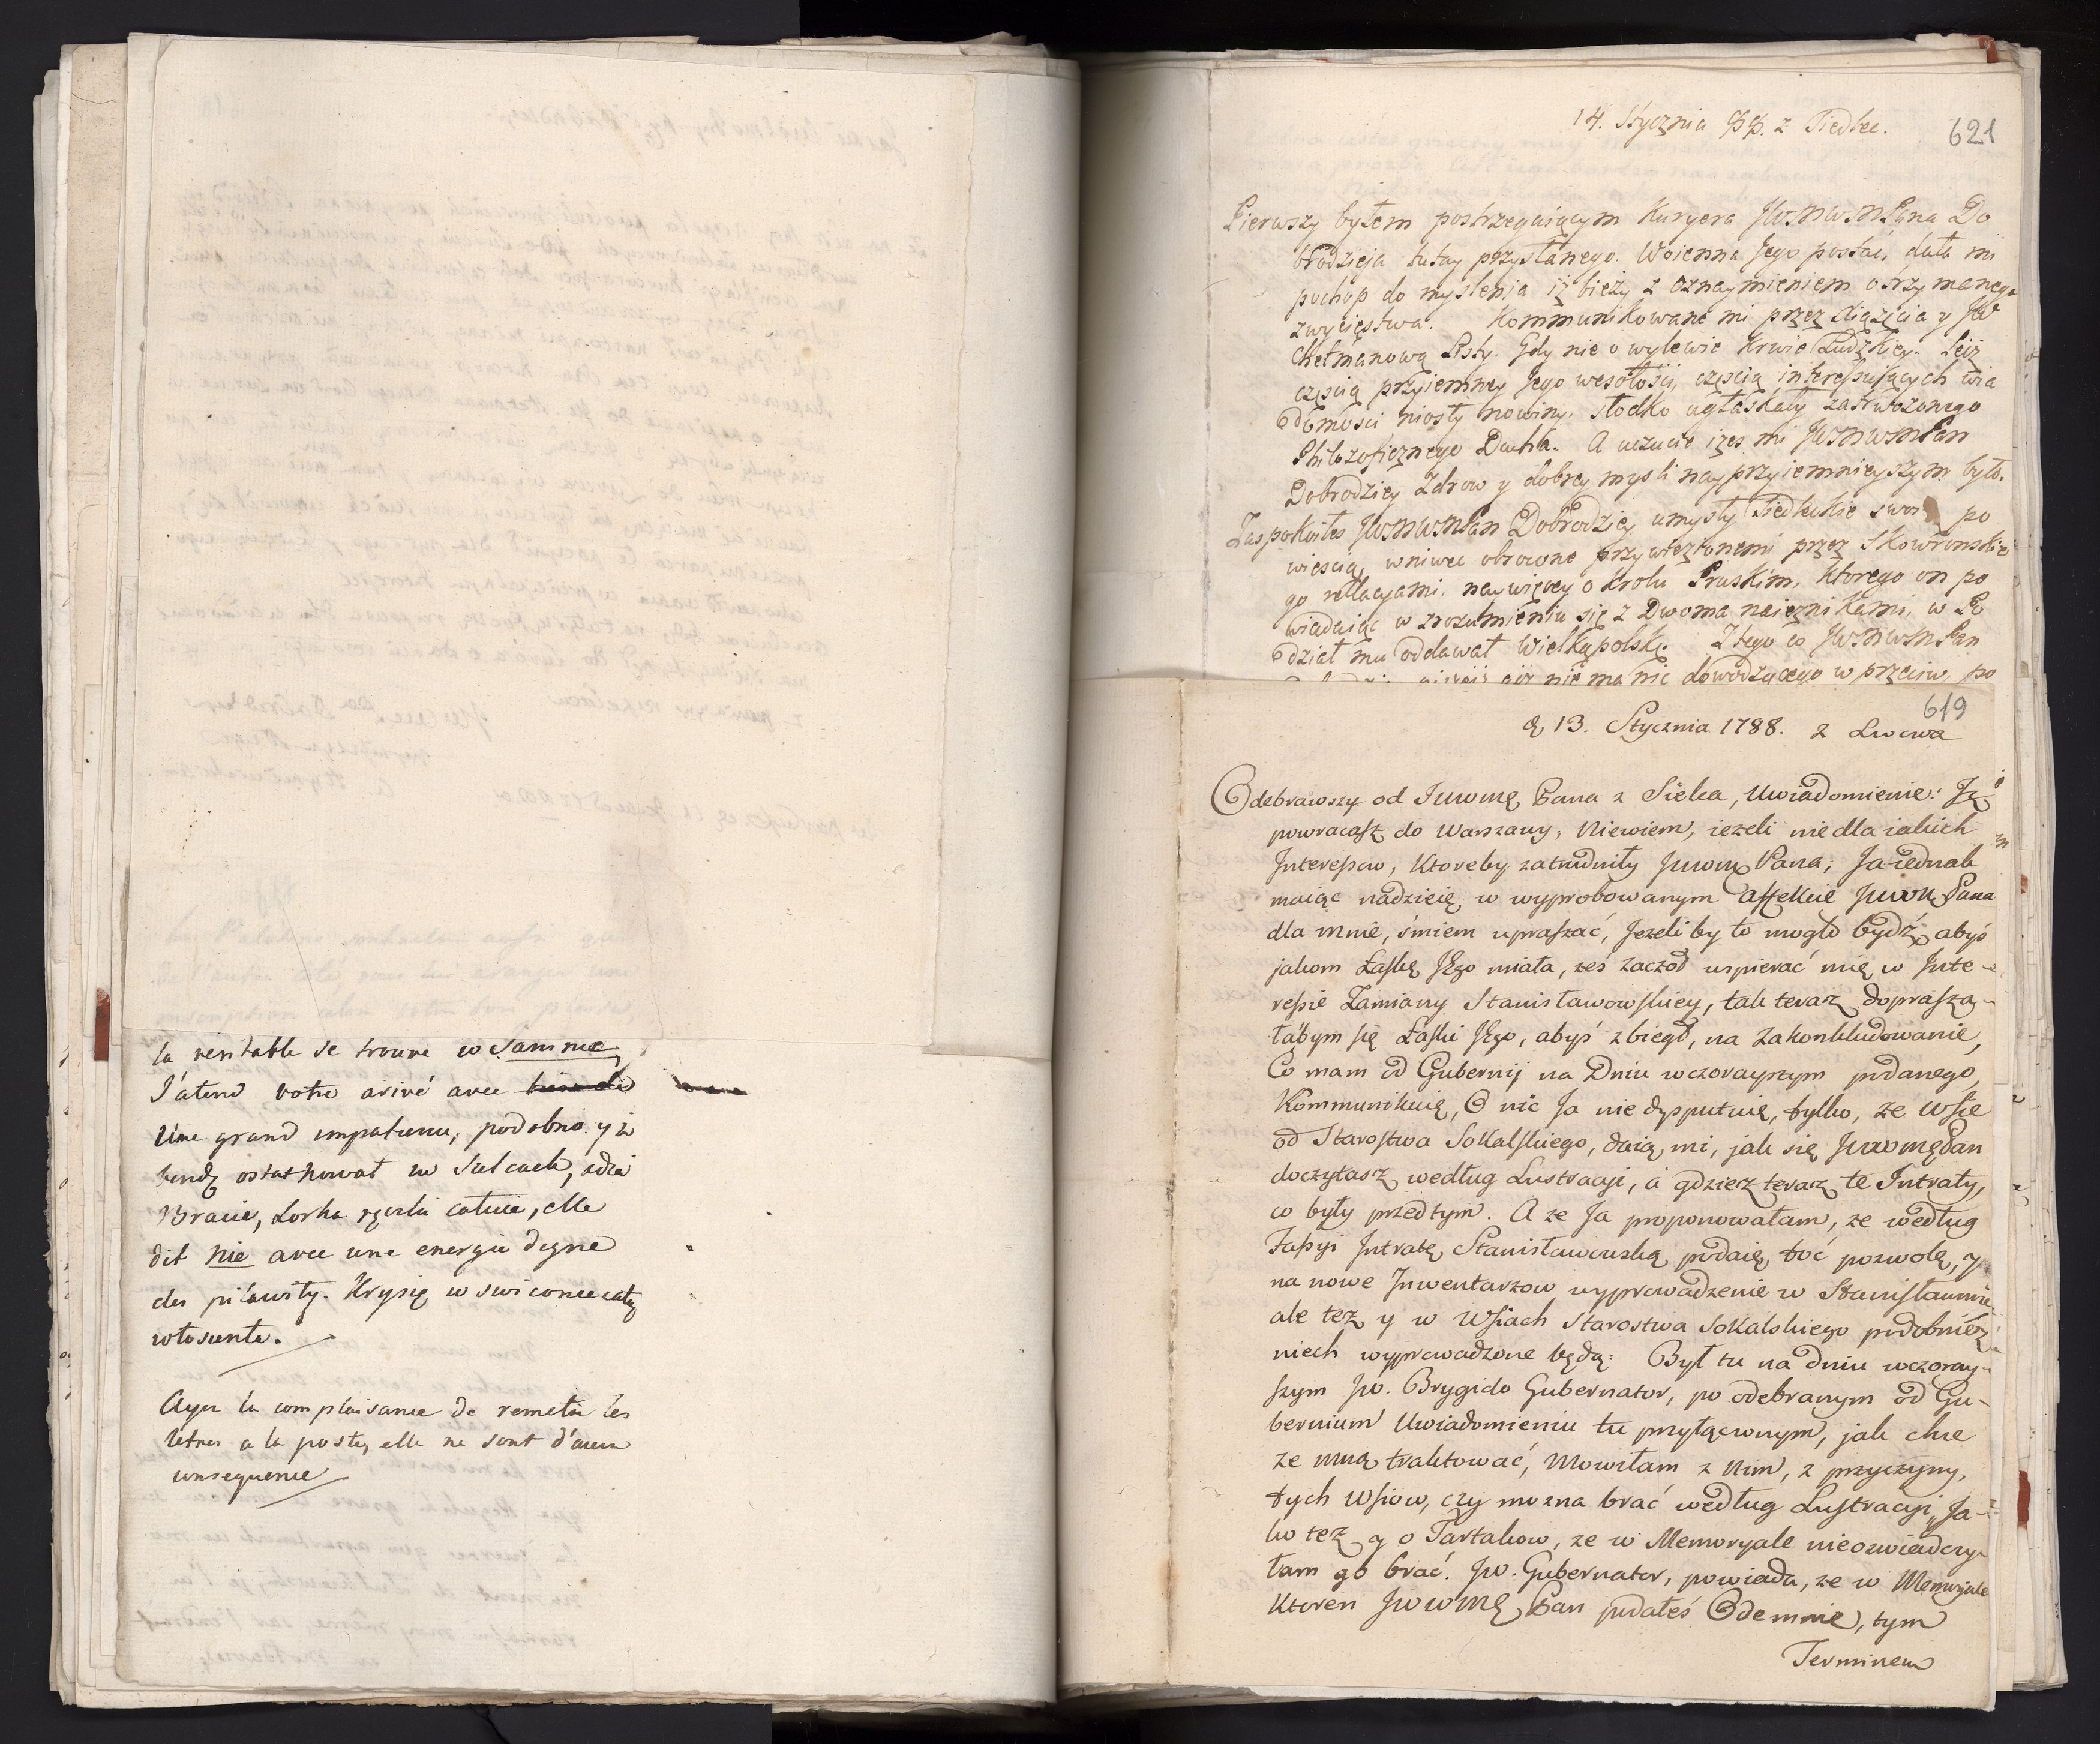 la veritable se trouve w Samnie
J'atend votre arivé avec
Une grand impatience, podobno y w
bendę ostatkował w Salcach, zdra
Bracie, Lorka rzerlia calnie, elle
dit Nie avec une energie digne
des pilawity. Krysię w swiconce całą
Ayez la complaisance de remetre les
letres a la poste, elle ne sont d'aucun
consequence
14. Stycznia z Siedlec.
621
Pierwszy byłem postrzegaiącym Kuryera JWWMPana Do
brodzieja tutay przysłanego. Woienna Jego postać, dała mi
pochop do myslenia iż bieży z oznaymieniem otrzymanego
zwycięstwa. Kommunikowane mi przez Xiążęcia y JW
Hetmanową Listy. Gdy nie o wylewie Krwie Ludzkiey. Leiz
częscią przyiemney Jego wesołości, częscią interessuiących wia
domosci niosły nowiny. słodko ugłaskały zatrwozonego
Philozoficznego Ducha. A uczucie izes mi JWWMPan
Dobrodziey Zdrow y dobrey mysli nayprzyiemnieyszym było.
Zaspokoiłes JWWMPan Dobrodziey umysły Siedleckie swo po
wiescią, wniwec obrocone przywiezionemi przez Skowronskie
go rellacyami. naywięcey o Krolu Pruskim, ktorego on po
wiadaiąc w zrozumieniu się z Dwoma naieznikami, w Po
dział mu oddawał Wielkąpolskę. Ztego co JWWMPan
nie ma nic dowodzącego w przeciw po
619
d 13. Stycznia 1788. z Lwowa
Odebrawszy od JWWMę Pana z Sielca, Uwiadomienie: Jż
powracasz do Warszawy, Niewiem, iezeli nie dla iakich
Interessow, Ktoreby zatrudniły JWWMę Pana; Ja iednak
maiąc nadzieię w wyprobowanym affekcie JWWMę Pana
dla mnie, śmiem upraszać, Jezeli by to mogło bydź, abyś
jakom Łaskę JEgo miała, żeś zaczoł uspierać mię w Inte-
ressie Zamiany Stanisławowskiey, tak teraz doprasza-
łabym się Łaski JEgo, abyś zbiegł, na zakonkludowanie,
Co mam od Gubernij na Dniu wczorayszym podanego,
Kommunikuię, O nic Ja nie dysputuię, tylko, ze Wsie
od Starostwa Sokalskiego, daią mi, jak się JWWMę Pan
doczytasz według Lustracyi, a gdziez teraz te Intraty,
co były przedtym. A ze Ja proponowałam, ze według
Fassyi Intratę Stanisławowską podaię, toć pozwolę, y
na nowe Inwentarzow wyprowadzenie w Stanisławowie
ale tez y w Wsiach Starostwa Sokalskiego podobniez
niech wyprowadzone będą: Był tu na dniu wczoray-
szym JW. Brygido Gubernator, po odebranym od Gu-
bernium Uwiadomieniu tu przyłączonym, jak chce
ze mną traktować, Mowiłam z Nim, z przyczyny,
tych Wsiow, czy mozna brać według Lustracyi, Ja-
ko tez y o Tartakow, ze w Memoryale nieoswiadczy-
łam go brać. JW. Gubernator, powiada, ze w Memoryale
Ktoren JWWMę Pan podałeś Odemnie, tym
Terminem